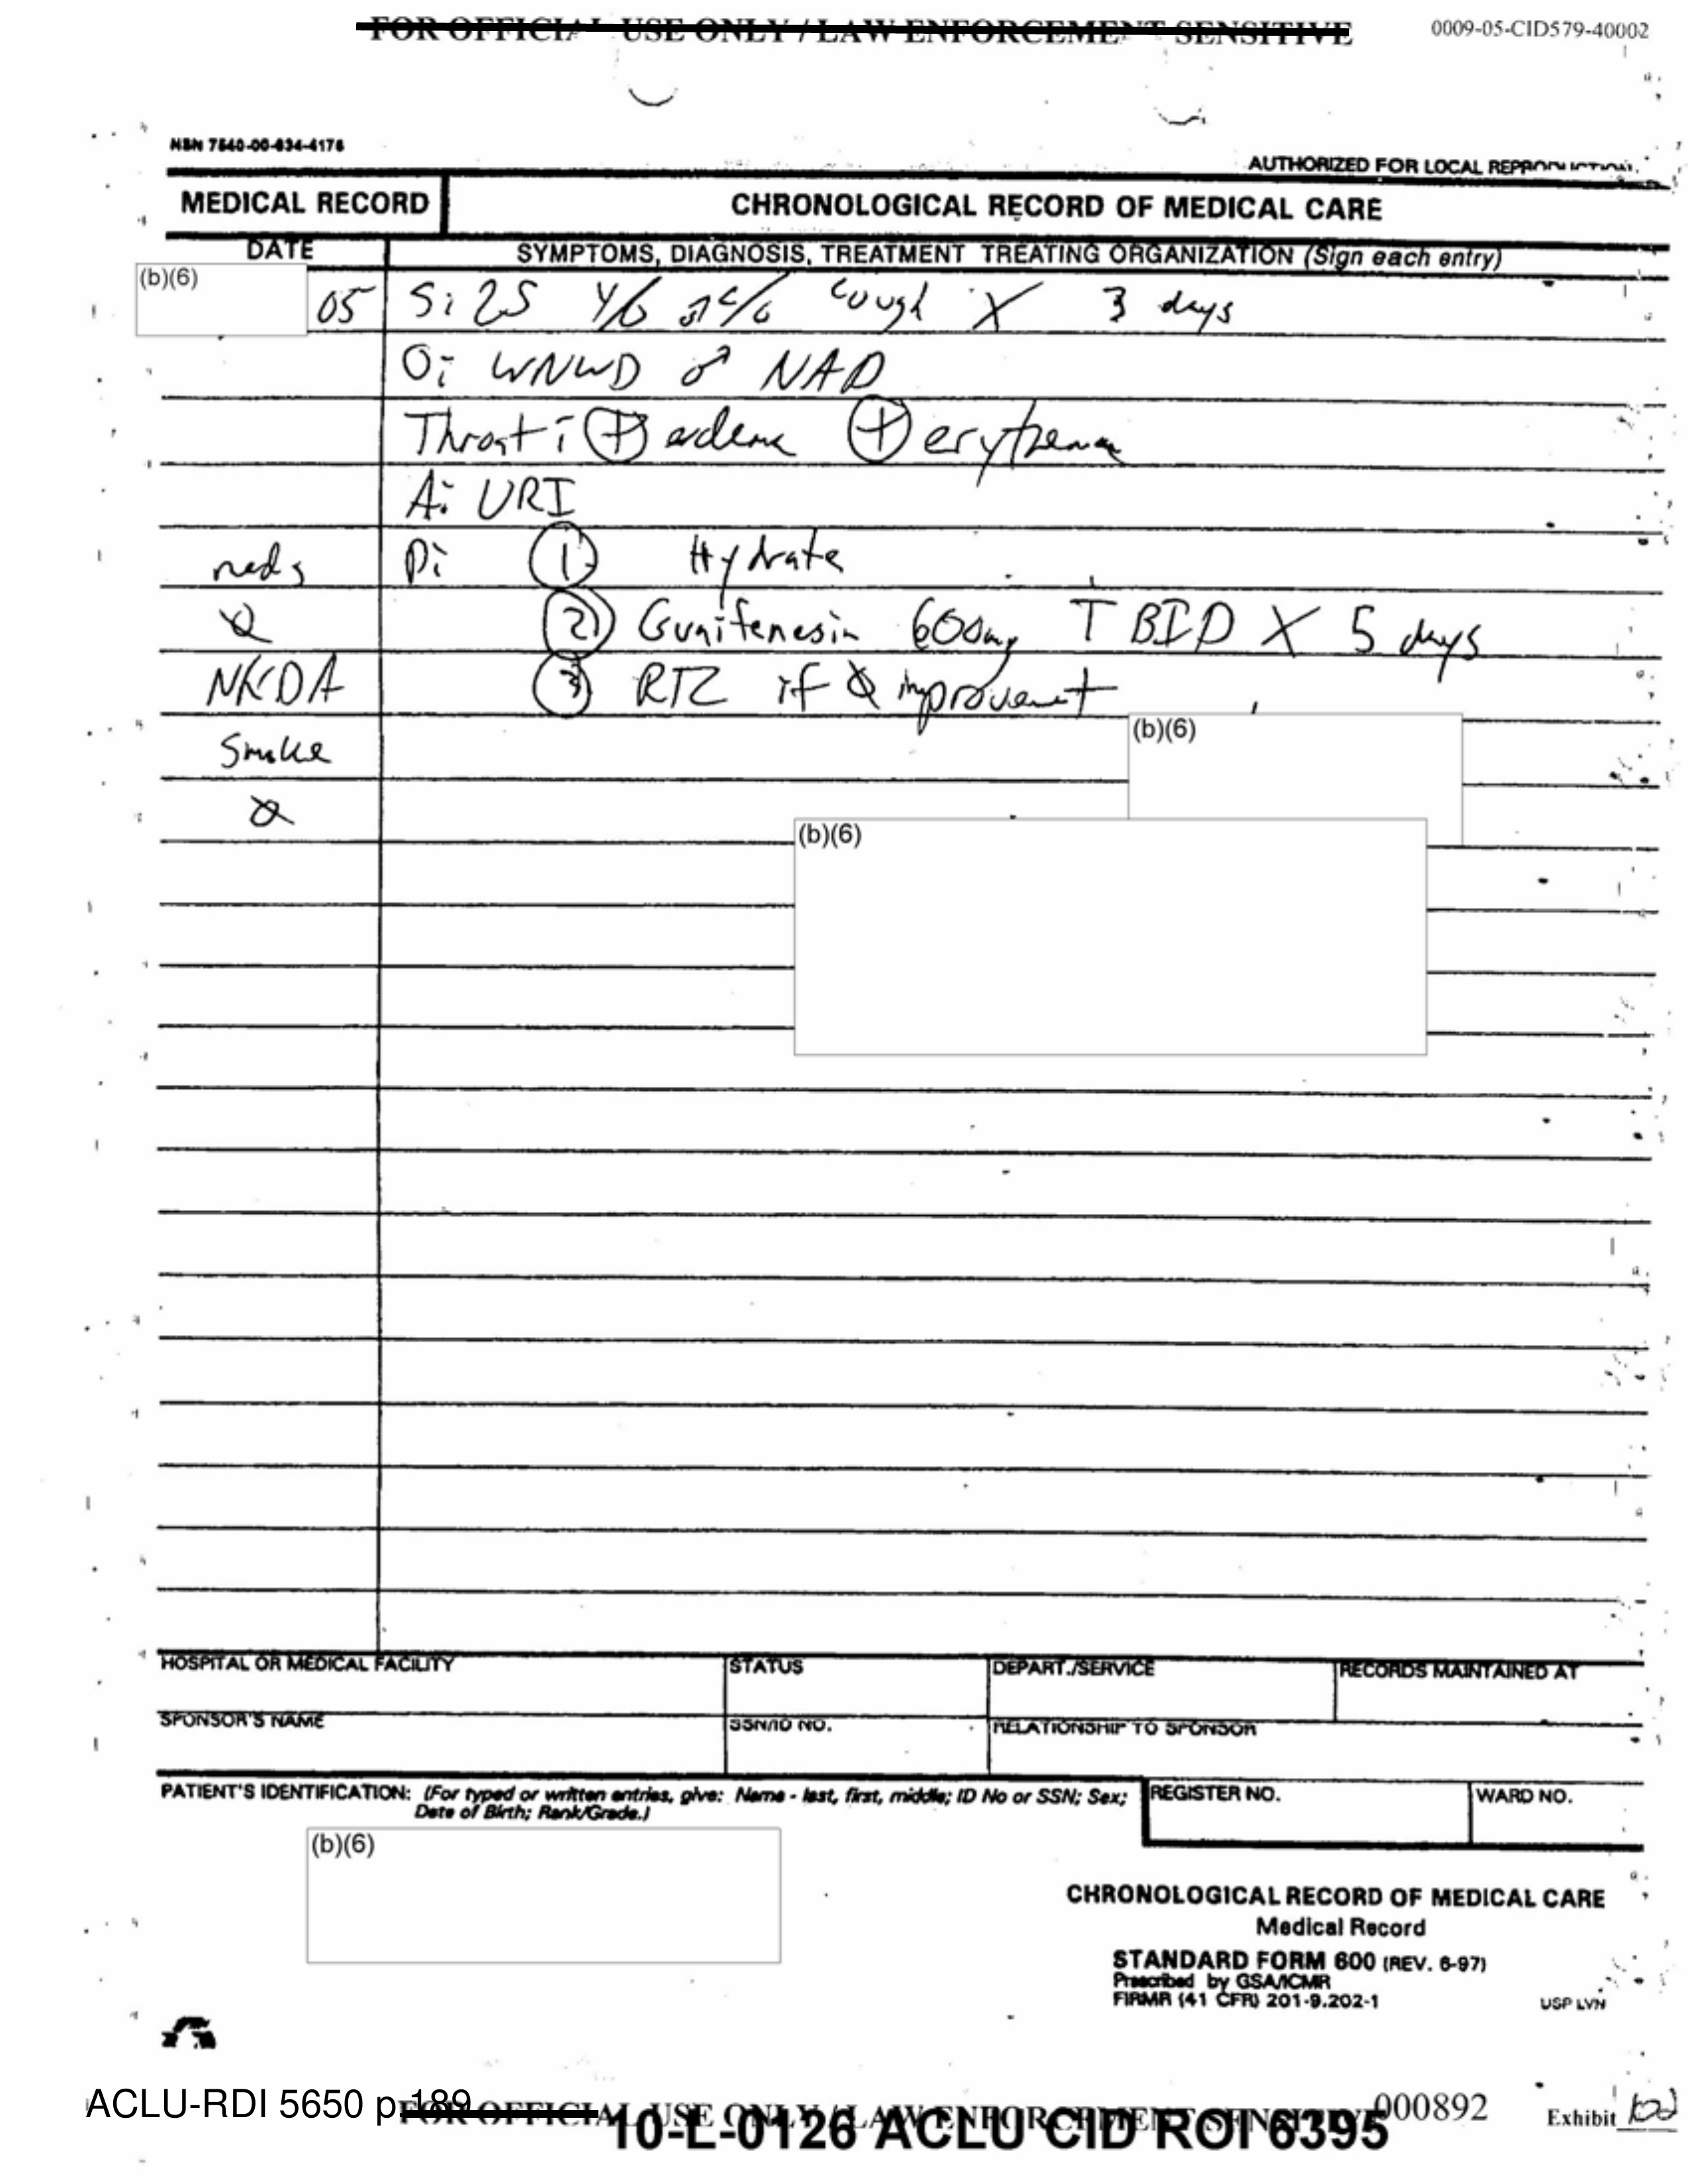 FOR OFFICIAL USE ONLY / LAW ENFORCEMENT SENSITIVE
0009-05-CID579-40002
NSN 7540-00-634-4176
AUTHORIZED FOR LOCAL REPRODUCTION
MEDICAL RECORD
CHRONOLOGICAL RECORD OF MEDICAL CARE
DATE
SYMPTOMS, DIAGNOSIS, TREATMENT TREATING ORGANIZATION (Sign each entry)
(b)(6)
05 S: 25 Y/O ♂ c/o cough X 3 days
O: WNWD ♂ NAD
Throat: (+) edema (+) erythema
A: URI
meds P: (1) Hydrate
Ø (2) Guaifenesin 600mg T BID X 5 days
NKDA (3) RTC if Ø improvement
(b)(6)
Smoke
Ø
(b)(6)
HOSPITAL OR MEDICAL FACILITY STATUS DEPART./SERVICE RECORDS MAINTAINED AT
SPONSOR'S NAME SSN/ID NO. RELATIONSHIP TO SPONSOR
PATIENT'S IDENTIFICATION: (For typed or written entries, give: Name - last, first, middle; ID No or SSN; Sex; REGISTER NO. WARD NO.
Date of Birth; Rank/Grade.)
(b)(6)
CHRONOLOGICAL RECORD OF MEDICAL CARE
Medical Record
STANDARD FORM 600 (REV. 6-97)
Prescribed by GSA/ICMR
FIRMR (41 CFR) 201-9.202-1
USP LVN
ACLU-RDI 5650 p.189
FOR OFFICIAL USE ONLY / LAW ENFORCEMENT SENSITIVE
000892
Exhibit
10-L-0126 ACLU CID ROI 6395